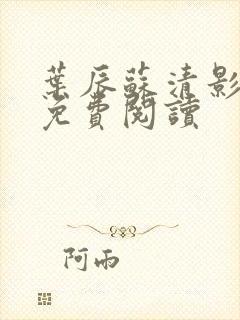 葉辰蘇清影
免費閱讀
阿雨